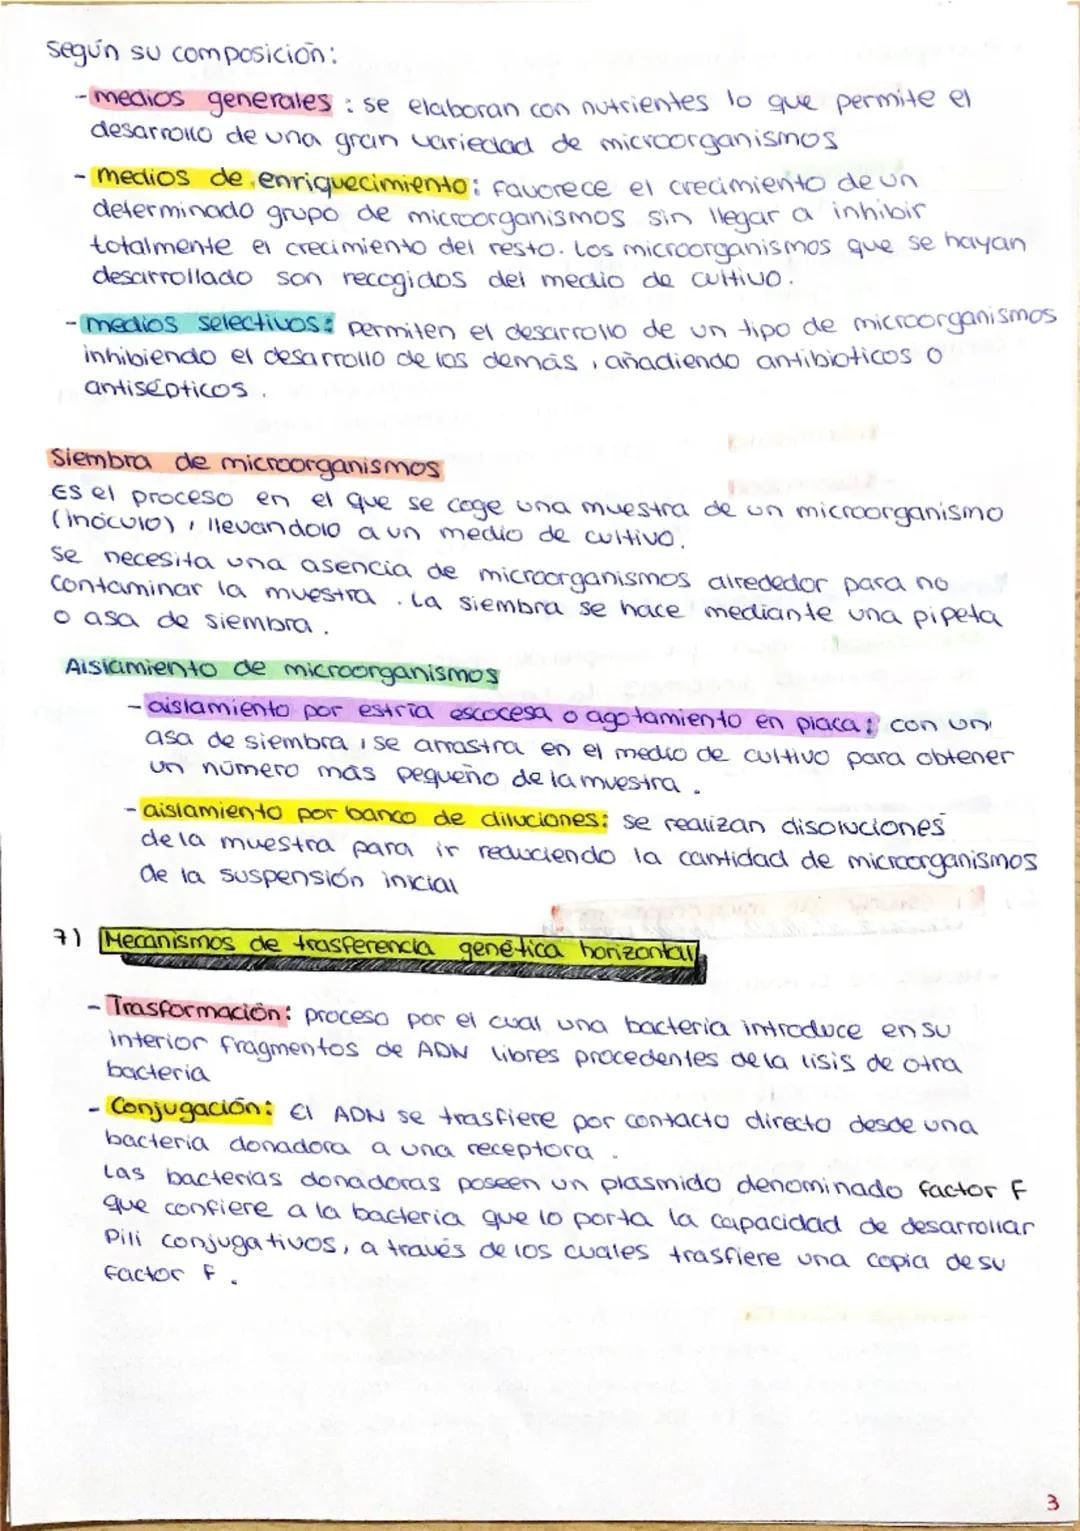 según su composición:
- medios generales : se elaboran con nutrientes lo que permite el
desarrollo de una gran variedad de microorganismos
- medios de enriquecimiento: favorece el crecimiento de un
determinado grupo de microorganismos sin llegar a inhibir
totalmente el crecimiento del resto. Los microorganismos que se hayan
desarrollado son recogidos del medio de cultivo.
- medios selectivos: permiten el desarrollo de un tipo de microorganismos
inhibiendo el desarrollo de los demás, añadiendo antibioticos o
antisépticos.
Siembra de microorganismos
Es el proceso en el que se coge una muestra de un microorganismo
(inóculo), llevandolo a un medio de cultivo.
Se necesita una asencia de microorganismos alrededor para no
contaminar la muestra. La siembra se hace mediante una pipeta
o asa de siembra.
Aislamiento de microorganismos
- aislamiento por estría escocesa o agotamiento en placa: con un
asa de siembra, se arrastra en el medio de cultivo para obtener
un número más pequeño de la muestra.
- aislamiento por banco de diluciones: se realizan disoluciones
de la muestra para ir reduciendo la cantidad de microorganismos
de la suspensión inicial
7) Mecanismos de trasferencia genética horizontal
- Trasformación: proceso por el cual una bacteria introduce en su
interior fragmentos de ADN libres procedentes de la lisis de otra
bacteria
- Conjugación: El ADN se trasfiere por contacto directo desde una
bacteria donadora a una receptora.
Las bacterias donadoras poseen un plásmido denominado factor F
que confiere a la bacteria que lo porta la capacidad de desarrollar
Pili conjugativos, a través de los cuales trasfiere una copia de su
factor F.
3